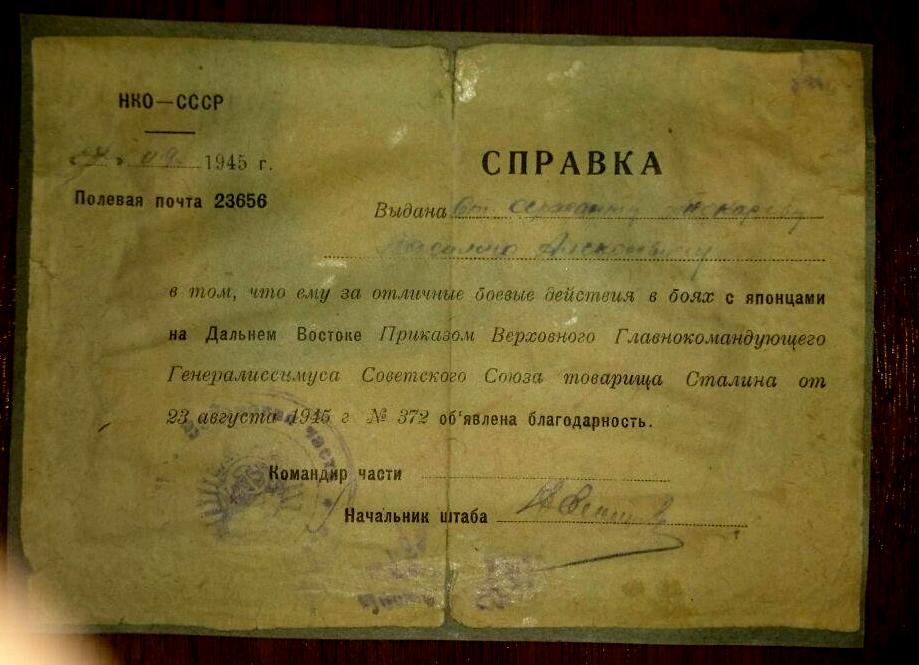 НКО—СССР
09. 1945 г.
Полевая почта 23656
СПРАВКА
Выдана Ст. сержанту
Алексеевичу
в том, что ему за отличные боевые действия в боях с японцами
на Дальнем Востоке Приказом Верховного Главнокомандующего
Генералиссимуса Советского Союза товарища Сталина от
23 августа 1945 г № 372 об‘явлена благодарность.
Командир части
Начальник штаба